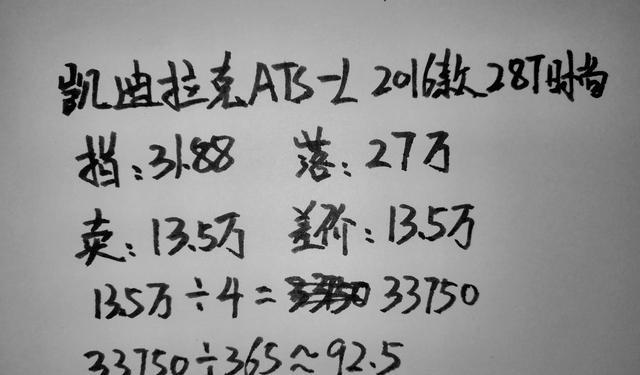 凯迪拉克ATS-L 2016款 28T时尚
指:31.88 落:27万
卖:13.5万 差价:13.5万
13.5万÷4=33750
33750÷365≈92.5